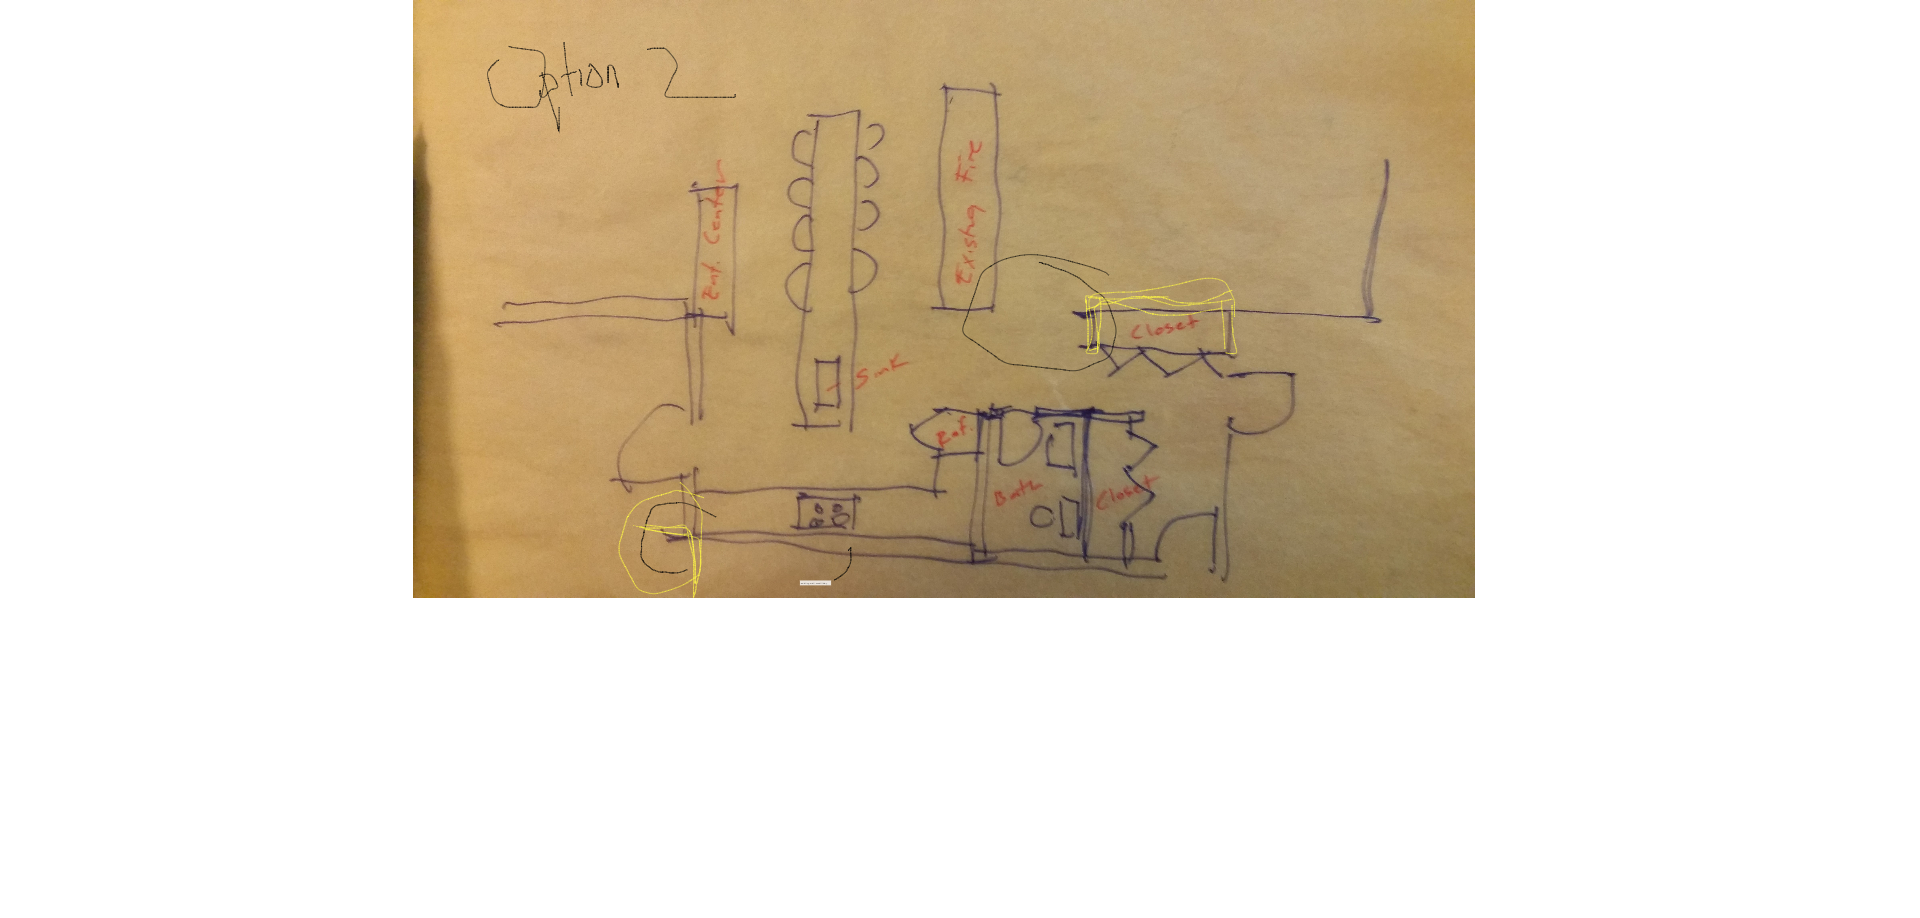 Option 2
Ent. Center
Existing Fire
Closet
Sink
Ref.
Bath
Closet